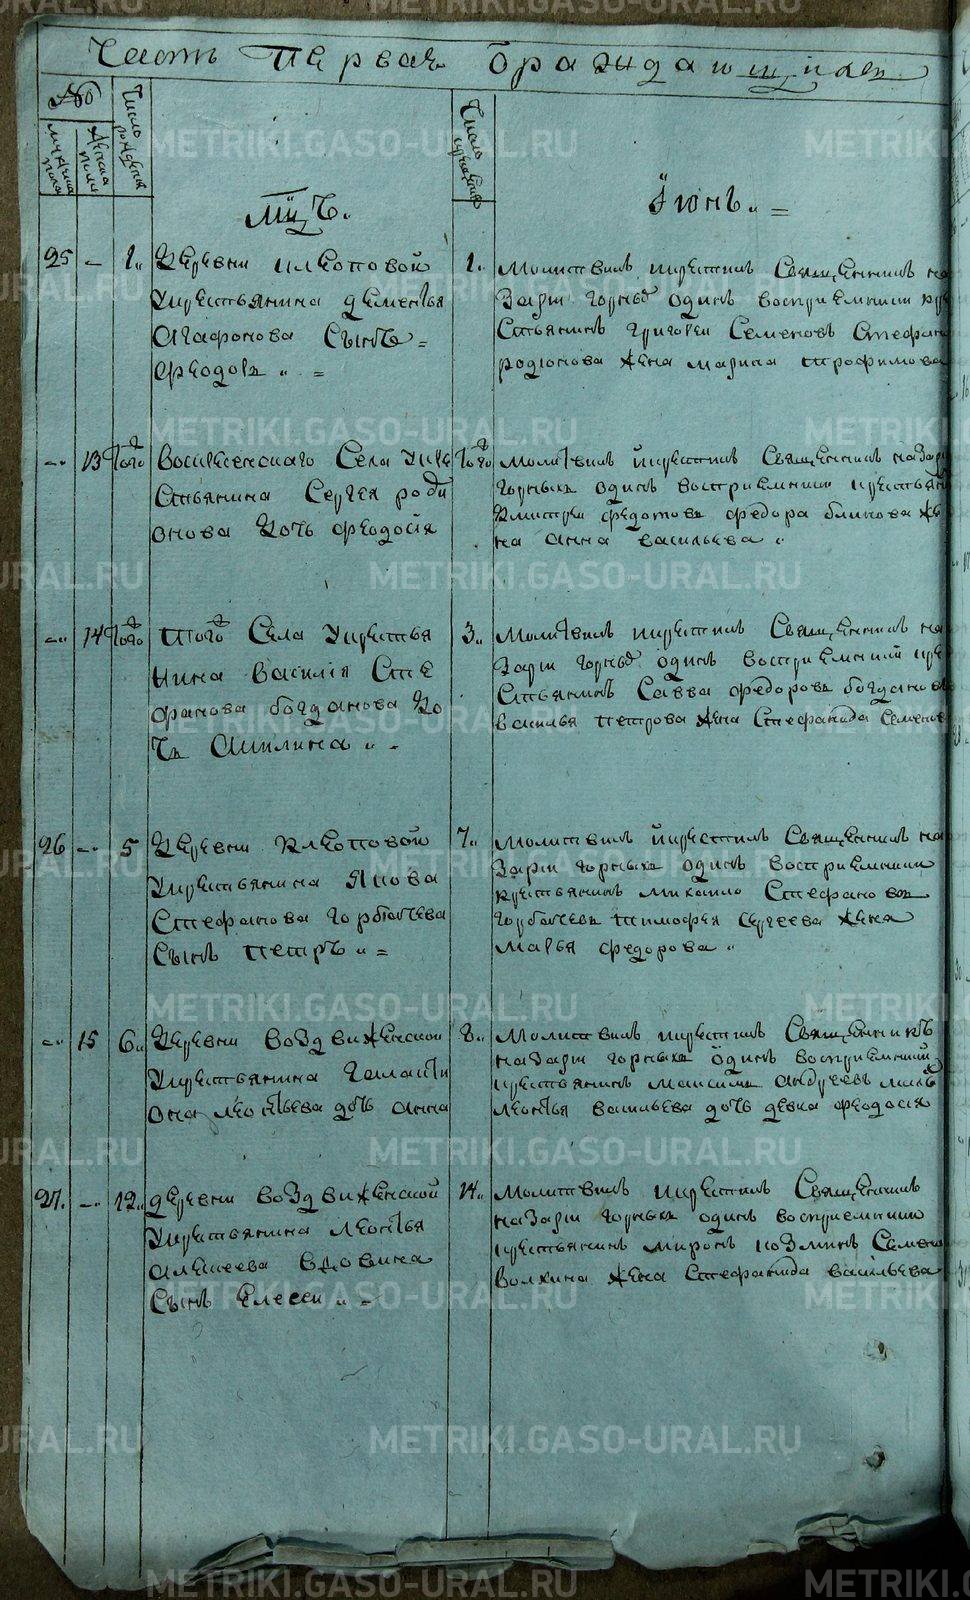 Часть Первая ораждающихся
№
мужеска пола
женска пола
Число рождения
Число крещения
Мцъ.
Июнь.
25 — 1.
деревни клеоповой
крестьянина дементья
Агафонова Сынъ
Феодоръ
1.
Молитвилъ икрестилъ Священникъ на
зари горныхъ одинъ восприемники кре
стьянинъ григореи Семеновъ Стефана
родионова жена марина трофимова
— 13 Того
Воскресенскаго Села кре
стьянина Сергея роди
онова дочь феодосия
Того
Молитвилъ икрестилъ Священникъ назари
горныхъ одинъ восприемники крестьянинъ
дмитреи федотовъ федора блинова же
на анна васильева
— 14 Того
Того Села крестья
нина василия Сте
фанова богданова до
чь Акилина
3.
Молитвилъ икрестилъ Священникъ на
зари горныхъ одинъ восприемники кре
стьянинъ Савва федоровъ богдановъ
василья петрова жена Стефанида Семенов
26 — 5
деревни клеоповой
крестьянина Якова
Стефанова горбачева
Сынъ петръ
7.
Молитвилъ икрестилъ Священникъ на
зари горныхъ одинъ восприемники
крестьянинъ михаило Стефановъ
горбачевъ тимофея сергеева жена
марья федорова
— 15 6.
деревни воздвиженской
крестьянина галакти
она леонтьева дочь анна
8.
Молитвилъ икрестилъ Священникъ
назари горныхъ одинъ восприемники
крестьянинъ максимъ андреевъ
леонтья васильева дочь девка феодосия
27. — 12.
деревни воздвиженской
крестьянина леонтья
алексеева вдовина
Сынъ Елесеи
14.
Молитвилъ икрестилъ Священникъ
назари горныхъ одинъ восприемники
крестьянинъ миронъ козминъ Семена
волкина жена Стефанида васильева
METRIKI.GASO-URAL.RU